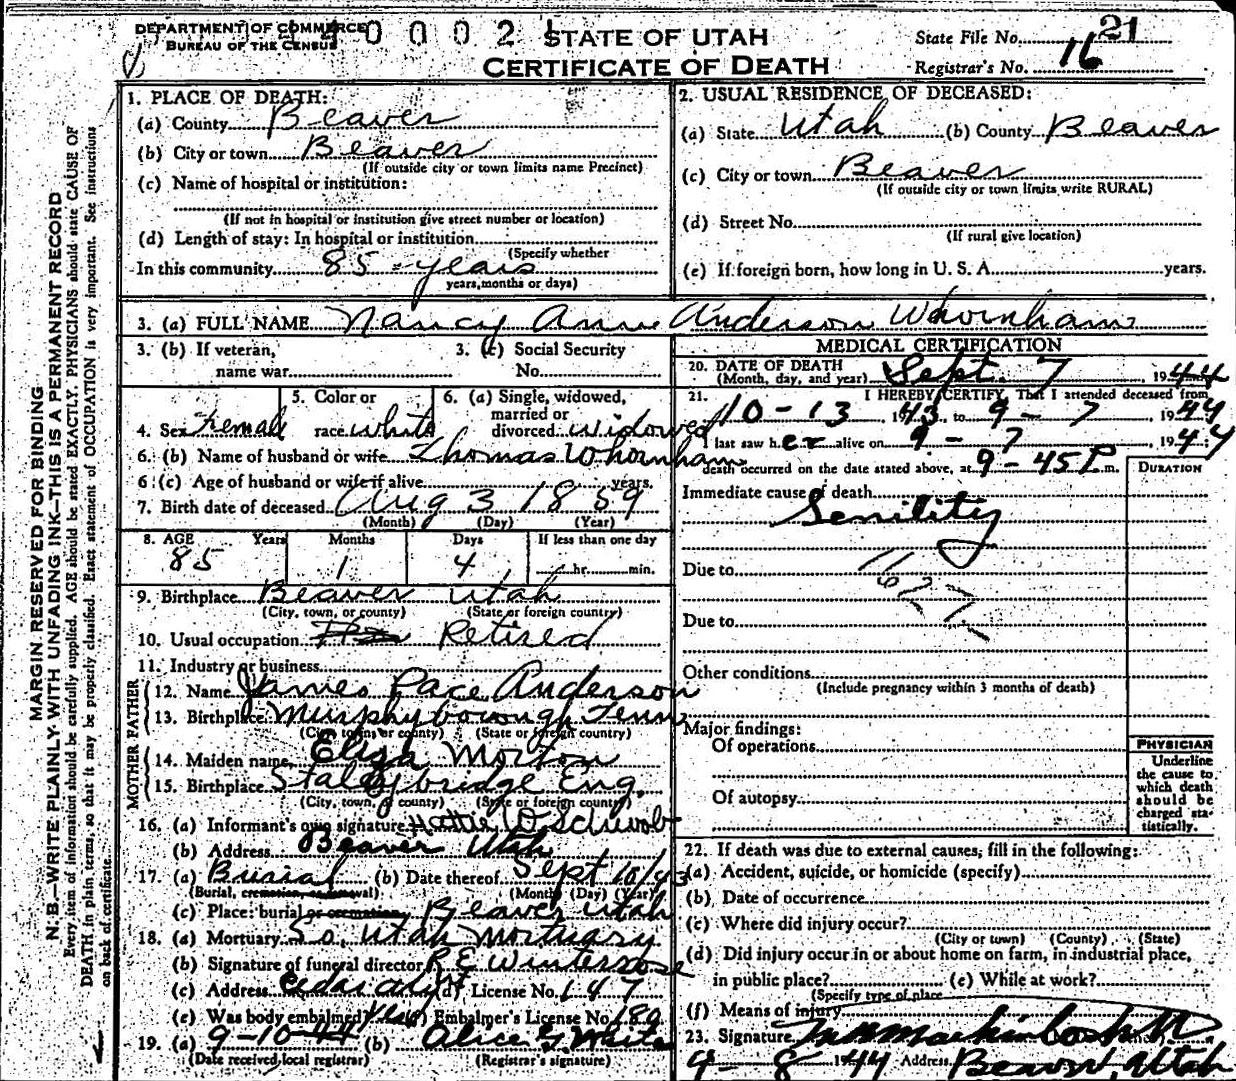 DEPARTMENT OF COMMERCE
BUREAU OF THE CENSUS
0 0 0 2
STATE OF UTAH
CERTIFICATE OF DEATH
State File No. 21
Registrar's No. 16
MARGIN RESERVED FOR BINDING
N. B.—WRITE PLAINLY, WITH UNFADING INK—THIS IS A PERMANENT RECORD
Every item of information should be carefully supplied. AGE should be stated EXACTLY. PHYSICIANS should state CAUSE OF
DEATH in plain terms, so that it may be properly classified. Exact statement of OCCUPATION is very important. See instructions
on back of certificate.
1. PLACE OF DEATH:
(a) County Beaver
(b) City or town Beaver
(If outside city or town limits name Precinct)
(c) Name of hospital or institution:
(If not in hospital or institution give street number or location)
(d) Length of stay: In hospital or institution
(Specify whether
In this community 85 years
years, months or days)
2. USUAL RESIDENCE OF DECEASED:
(a) State Utah (b) County Beaver
(c) City or town Beaver
(If outside city or town limits write RURAL)
(d) Street No.
(If rural give location)
(e) If foreign born, how long in U. S. A. years.
3. (a) FULL NAME Nancy Ann Anderson Whornham
3. (b) If veteran,
name war
3. (c) Social Security
No.
4. Sex Female
5. Color or
race white
6. (a) Single, widowed,
married or
divorced widowed
6. (b) Name of husband or wife Thomas Whornham
6. (c) Age of husband or wife if alive years.
7. Birth date of deceased Aug 3 1859
(Month) (Day) (Year)
8. AGE Years Months Days If less than one day
85 1 4 hr. min.
9. Birthplace Beaver Utah
(City, town, or county) (State or foreign country)
10. Usual occupation Retired
11. Industry or business
FATHER
12. Name James Pace Anderson
13. Birthplace Murphyborough Tenn
(City, town or county) (State or foreign country)
MOTHER
14. Maiden name Eliza Morton
15. Birthplace Staleybridge Eng.
(City, town, or county) (State or foreign country)
16. (a) Informant's own signature Hattie W Schwob
(b) Address Beaver Utah
17. (a) Burial (b) Date thereof Sept 10/43
(Burial, cremation, removal) (Month) (Day) (Year)
(c) Place: burial or cremation Beaver Utah
18. (a) Mortuary So. Utah Mortuary
(b) Signature of funeral director R E Winterrose
(c) Address Cedar City (d) License No. 147
(e) Was body embalmed? Yes (f) Embalmer's License No. 180
19. (a) 9-10-44 (b) Alice G. White
(Date received local registrar) (Registrar's signature)
MEDICAL CERTIFICATION
20. DATE OF DEATH
(Month, day, and year) Sept. 7, 1944
21. I HEREBY CERTIFY, That I attended deceased from
10-13 1943, to 9-7 1944
I last saw her alive on 9-7, 1944;
death occurred on the date stated above, at 9-45 P. m.
DURATION
Immediate cause of death
Senility
Due to
Due to
Other conditions
(Include pregnancy within 3 months of death)
Major findings:
Of operations
Of autopsy
PHYSICIAN
Underline
the cause to
which death
should be
charged sta-
tistically.
22. If death was due to external causes, fill in the following:
(a) Accident, suicide, or homicide (specify)
(b) Date of occurrence
(c) Where did injury occur?
(City or town) (County) (State)
(d) Did injury occur in or about home on farm, in industrial place,
in public place? (e) While at work?
(Specify type of place
(f) Means of injury
23. Signature
9-8-1944 Address Beaver, Utah